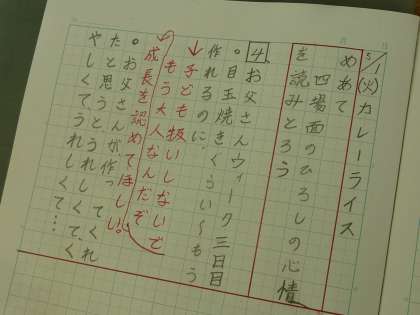 5/1(火)カレーライス
めあて
四場面のひろしの心情
を読みとろう
4 お父さんウィーク三日目
・目玉焼きくらい〜もう
作れるのに、
↓子ども扱いしないで
もう大人なんだぞ
成長を認めてほしい。
・お父さんが、作ってくれ
たと思うとうれしくて、く
やしくて、うれしくて…